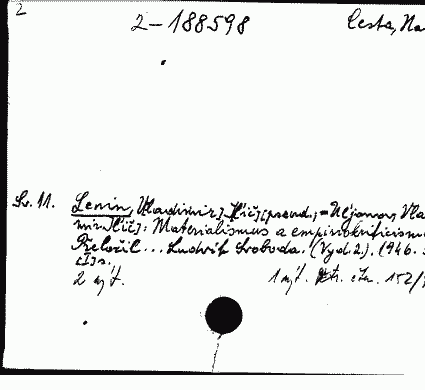 2
2-188598 Cesta, Na
Sv. 11. Lenin, Vladimir] Iľjič [pseud., = Uljanov, Vla
mir Iľjič]: Materialismus a empiriokriticism
Přeložil... Ludvík Svoboda. (Vyd. 2.). (1946.
[I] s.
2 výt. 1 výt. čta. 152/